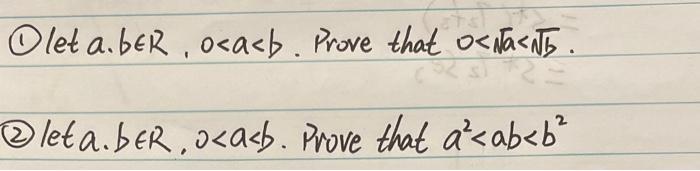 ① let a.b∈R, 0<a<b. Prove that 0<√a<√b.
② let a.b∈R, 0<a<b. Prove that a²<ab<b²